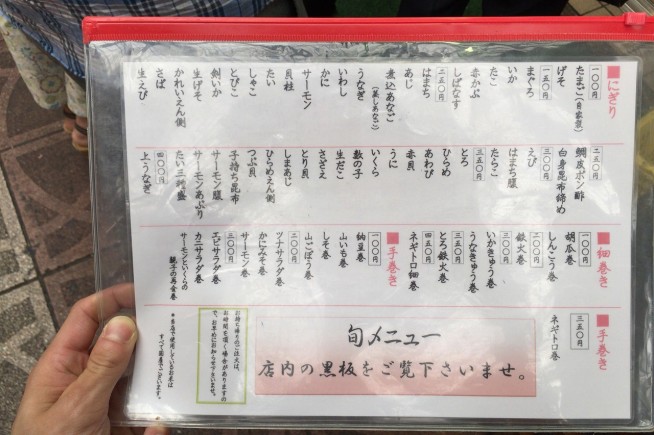 ■にぎり
一〇〇円
たまご(自家製)
げそ
一五〇円
まぐろ
いか
たこ
赤かぶ
しばなす
二五〇円
はまち
あじ
煮込あなご
(蒸しあなご)
うなぎ
いわし
かに
サーモン
貝柱
たい
しゃこ
とびこ
剣いか
生げそ
かれいえん側
さば
生えび
二五〇円
鯛皮ポン酢
白身昆布締め
えび
三〇〇円
はまち腹
たらこ
三五〇円
とろ
ひらめ
あわび
赤貝
うに
いくら
数の子
生だこ
さざえ
とり貝
しまあじ
ひらめえん側
つぶ貝
子持ち昆布
サーモン腹
サーモンあぶり
たい三種盛
四〇〇円
上うなぎ
■細巻き
一〇〇円
胡瓜巻
しんこう巻
二〇〇円
鉄火巻
三〇〇円
いかきゅう巻
うなきゅう巻
三五〇円
とろ鉄火巻
四五〇円
ネギトロ細巻
■手巻き
一〇〇円
納豆巻
山いも巻
しそ巻
山ごぼう巻
二〇〇円
ツナサラダ巻
かにみそ巻
サーモン巻
三〇〇円
エビサラダ巻
カニサラダ巻
サーモンといくらの
親子の再会巻
■手巻き
三五〇円
ネギトロ巻
旬メニュー
店内の黒板をご覧下さいませ。
お持ち帰りのご注文は、
お時間を頂く場合がありますの
で、お早めにお知らせ下さいませ。
*当店で使用しているお米は
すべて国産でございます。